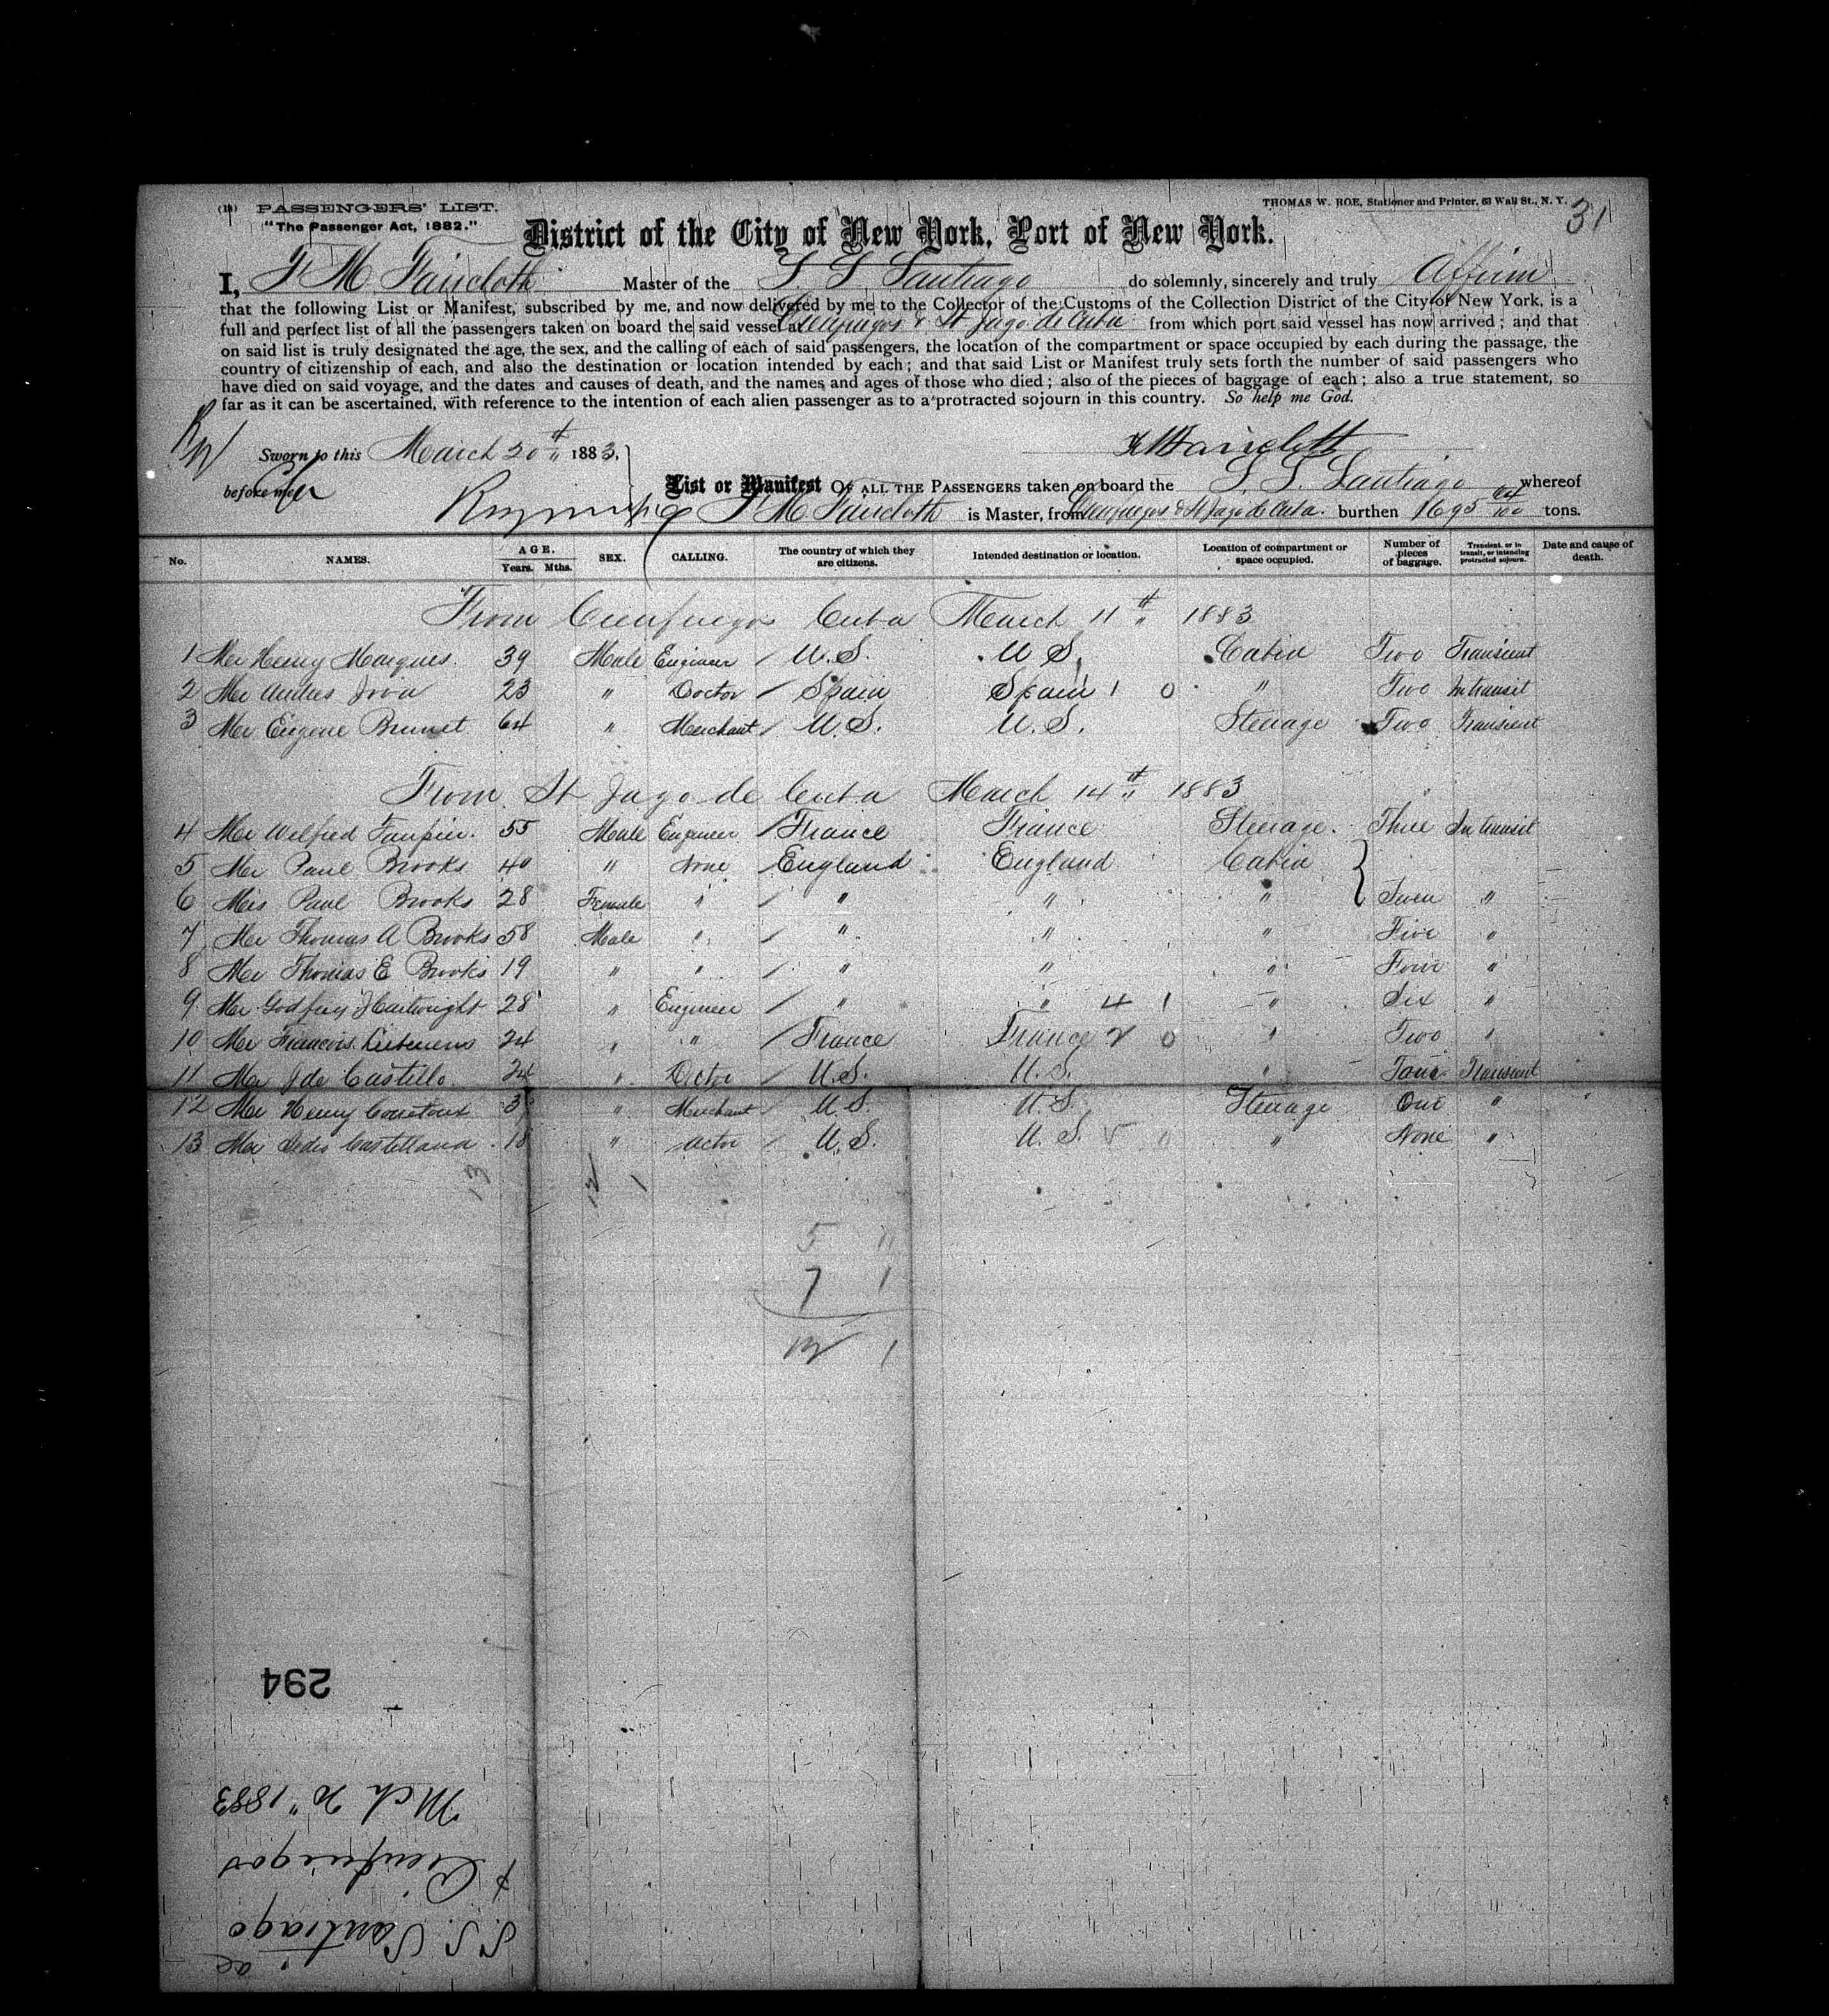 (14) PASSENGERS' LIST.
THOMAS W. ROE, Stationer and Printer, 63 Wall St., N. Y.
31
"The Passenger Act, 1882."
District of the City of New York, Port of New York.
I, F M Faircloth Master of the S. S Santiago do solemnly, sincerely and truly Affirm
that the following List or Manifest, subscribed by me, and now delivered by me to the Collector of the Customs of the Collection District of the City of New York, is a
full and perfect list of all the passengers taken on board the said vessel at Cienfuegos & St Jago de Cuba from which port said vessel has now arrived; and that
on said list is truly designated the age, the sex, and the calling of each of said passengers, the location of the compartment or space occupied by each during the passage, the
country of citizenship of each, and also the destination or location intended by each; and that said List or Manifest truly sets forth the number of said passengers who
have died on said voyage, and the dates and causes of death, and the names and ages of those who died; also of the pieces of baggage of each; also a true statement, so
far as it can be ascertained, with reference to the intention of each alien passenger as to a protracted sojourn in this country. So help me God.
Sworn to this March 20th 1883, F M Faircloth
before me
List or Manifest OF ALL THE PASSENGERS taken on board the S. S. Santiago whereof
F M Faircloth is Master, from Cienfuegos & St Jago de Cuba. burthen 1695 64/100 tons.
No. NAMES. AGE. Years. Mths. SEX. CALLING. The country of which they are citizens. Intended destination or location. Location of compartment or space occupied. Number of pieces of baggage. Transient, or in transit, or intending protracted sojourn. Date and cause of death.
From Cienfuegos Cuba March 11th 1883
1 Mr Henry Marques. 39 Male Engineer / U.S. U S, Cabin Two Transient
2 Mr Andres Jova 23 " Doctor / Spain Spain 1 0 " Two In transit
3 Mr Eugene Brunet 64 " Merchant / U.S. U.S. Steerage Two Transient
From St Jago de Cuba March 14th 1883
4 Mr Wilfred 55 Male Engineer / France France Steerage. Three In transit
5 Mr Paul Brooks 40 " None / England England Cabin
6 Mrs Paul Brooks 28 Female " / " " " Seven "
7 Mr Thomas A Brooks 58 Male " / " " " Five "
8 Mr Thomas E Brooks 19 " " / " " " Four "
9 Mr Godfrey J Cartwright 28 " Engineer / " " 4 1 " Six "
10 Mr Francois 24 " " / France France 2 0 " Two "
11 Mr J de Castillo 24 " Doctor / U.S. U.S. " Four Transient
12 Mr Henry 3 " Merchant / U.S. U.S. Steerage One "
13 Mr Pedro Castellana 18 " actor / U.S. U. S. 5 " " None "
13 12 1
5 "
7 1
12 1
294
Mch 20" 1883
& Cienfuegos
S.S. Santiago